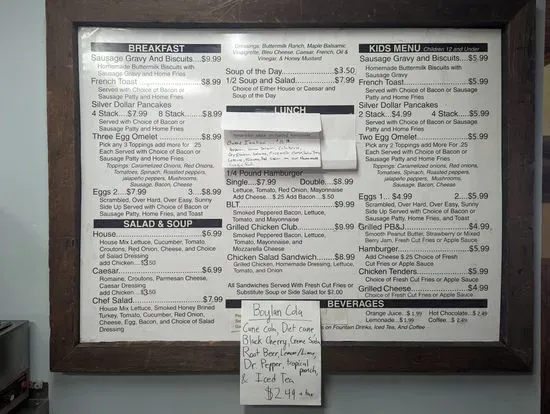 BREAKFAST
Sausage Gravy And Biscuits....$9.99
Homemade Buttermilk Biscuits with
Sausage Gravy and Home Fries
French Toast.............................$8.99
Served with Choice of Bacon or
Sausage Patty and Home Fries
Silver Dollar Pancakes
4 Stack....$7.99 8 Stack......$8.99
Served with Choice of Bacon or
Sausage Patty and Home Fries
Three Egg Omelet....................$8.99
Pick any 3 Toppings add more for .25
Each Served with Choice of Bacon or
Sausage Patty and Home Fries
Toppings: Caramelized Onions, Red Onions,
Tomatoes, Spinach, Roasted peppers,
jalapeño peppers, Mushrooms,
Sausage, Bacon, Cheese
Eggs 2....$7.99 3......$8.99
Scrambled, Over Hard, Over Easy, Sunny
Side Up Served with Choice of Bacon or
Sausage Patty, Home Fries, and Toast
SALAD & SOUP
House..........................................$6.99
House Mix Lettuce, Cucumber, Tomato,
Croutons, Red Onion, Cheese, and Choice
of Salad Dressing
add Chicken $3.50
Caesar.........................................$6.99
Romaine, Croutons, Parmesan Cheese,
Caesar Dressing
add Chicken $3.50
Chef Salad..................................$7.99
House Mix Lettuce, Smoked Honey Brined
Turkey, Tomato, Cucumber, Red Onion,
Cheese, Egg, Bacon, and Choice of Salad
Dressing
Dressings: Buttermilk Ranch, Maple Balsamic
Vinaigrette, Bleu Cheese, Caesar, French, Oil &
Vinegar, & Honey Mustard
Soup of the Day..........................$3.50
1/2 Soup and Salad...................$7.99
Choice of Either House or Caesar and
Soup of the Day
LUNCH
1/4 Pound Hamburger
Single....$7.99 Double....$8.99
Lettuce, Tomato, Red Onion, Mayonnaise
Add Cheese...$.25 Add Bacon ...$.50
BLT................................................$9.99
Smoked Peppered Bacon, Lettuce,
Tomato, and Mayonnaise
Grilled Chicken Club..................$9.99
Smoked Peppered Bacon, Lettuce,
Tomato, Mayonnaise, and
Mozzarella Cheese
Chicken Salad Sandwich..........$8.99
Grilled Chicken, Homemade Dressing, Lettuce,
Tomato, and Onion
All Sandwiches Served With Fresh Cut Fries or
Substitute Soup or Side Salad for $1.00
KIDS MENU Children 12 and Under
Sausage Gravy And Biscuits....$5.99
Homemade Buttermilk Biscuits with
Sausage Gravy
French Toast.............................$5.99
Served with Choice of Bacon or
Sausage Patty and Home Fries
Silver Dollar Pancakes
2 Stack....$4.99 4 Stack......$5.99
Served with Choice of Bacon or
Sausage Patty and Home Fries
Two Egg Omelet.........................$5.99
Pick any 2 Toppings Add More For .25
Each Served with Choice of Bacon or
Sausage Patty and Home Fries
Toppings: Caramelized Onions, Red Onions,
Tomatoes, Spinach, Roasted peppers,
jalapeño peppers, Mushrooms,
Sausage, Bacon, Cheese
Eggs 1....$4.99 2......$5.99
Scrambled, Over Hard, Over Easy, Sunny
Side Up Served with Choice of Bacon or
Sausage Patty, Home Fries, and Toast
Grilled PB&J................................$4.99
Smooth Peanut Butter, Strawberry or Mixed
Berry Jam, Fresh Cut Fries or Apple Sauce
Hamburger..................................$5.99
Add Cheese $.25 Choice of Fresh
Cut Fries or Apple Sauce
Chicken Tenders........................$5.99
Choice of Fresh Cut Fries or Apple Sauce
Grilled Cheese...........................$4.99
Choice of Fresh Cut Fries or Apple Sauce
BEVERAGES
Orange Juice...$1.99 Hot Chocolate...$2.49
Lemonade...$1.99 Coffee...$2.49
on Fountain Drinks, Iced Tea, And Coffee
Boylan Cola
Cane Cola, Diet cane
Black Cherry, Creme Soda
Root Beer, Lemon/Lime,
Dr. Pepper, tropical
punch,
& Iced Tea
$2.49 + tax